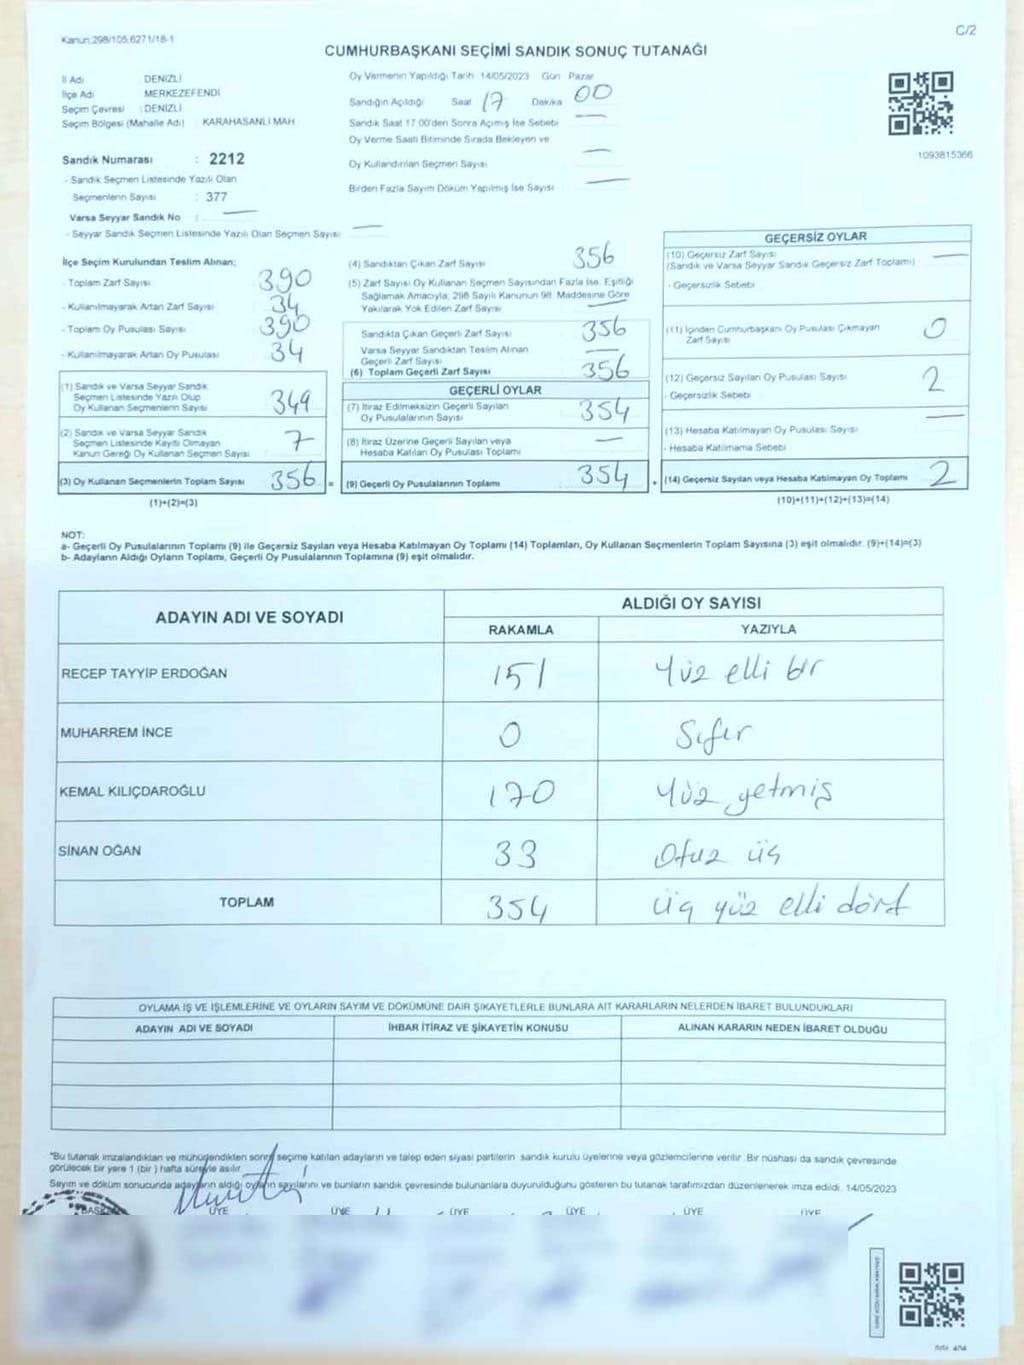 Kanun:298/105,6271/18-1
C/2
CUMHURBAŞKANI SEÇİMİ SANDIK SONUÇ TUTANAĞI
İl Adı DENİZLİ
İlçe Adı MERKEZEFENDİ
Seçim Çevresi : DENİZLİ
Seçim Bölgesi (Mahalle Adı) KARAHASANLI MAH
Sandık Numarası : 2212
- Sandık Seçmen Listesinde Yazılı Olan
Seçmenlerin Sayısı : 377
Varsa Seyyar Sandık No :
- Seyyar Sandık Seçmen Listesinde Yazılı Olan Seçmen Sayısı
Oy Vermenin Yapıldığı Tarih 14/05/2023 Gün Pazar
Sandığın Açıldığı Saat 17 Dakika 00
Sandık Saat 17.00'den Sonra Açımış İse Sebebi
Oy Verme Saati Bitiminde Sırada Bekleyen ve
Oy Kullandırılan Seçmen Sayısı
Birden Fazla Sayım Döküm Yapılmış İse Sayısı
1093815366
İlçe Seçim Kurulundan Teslim Alınan;
- Toplam Zarf Sayısı 390
- Kullanılmayarak Artan Zarf Sayısı 34
- Toplam Oy Pusulası Sayısı 390
- Kullanılmayarak Artan Oy Pusulası 34
(1) Sandık ve Varsa Seyyar Sandık
Seçmen Listesinde Yazılı Olup
Oy Kullanan Seçmenlerin Sayısı 349
(2) Sandık ve Varsa Seyyar Sandık
Seçmen Listesinde Kayıtlı Olmayan
Kanun Gereği Oy Kullanan Seçmen Sayısı 7
(3) Oy Kullanan Seçmenlerin Toplam Sayısı 356 =
(1)+(2)=(3)
(4) Sandıktan Çıkan Zarf Sayısı 356
(5) Zarf Sayısı Oy Kullanan Seçmen Sayısından Fazla İse, Eşitliği
Sağlamak Amacıyla, 298 Sayılı Kanunun 98. Maddesine Göre
Yakılarak Yok Edilen Zarf Sayısı
Sandıkta Çıkan Geçerli Zarf Sayısı 356
Varsa Seyyar Sandıktan Teslim Alınan
Geçerli Zarf Sayısı
(6) Toplam Geçerli Zarf Sayısı 356
GEÇERLİ OYLAR
(7) İtiraz Edilmeksizin Geçerli Sayılan
Oy Pusulalarının Sayısı 354
(8) İtiraz Üzerine Geçerli Sayılan veya
Hesaba Katılan Oy Pusulası Toplamı
(9) Geçerli Oy Pusulalarının Toplamı 354 +
GEÇERSİZ OYLAR
(10) Geçersiz Zarf Sayısı
(Sandık ve Varsa Seyyar Sandık Geçersiz Zarf Toplamı)
- Geçersizlik Sebebi
(11) İçinden Cumhurbaşkanı Oy Pusulası Çıkmayan
Zarf Sayısı 0
(12) Geçersiz Sayılan Oy Pusulası Sayısı 2
- Geçersizlik Sebebi
(13) Hesaba Katılmayan Oy Pusulası Sayısı
- Hesaba Katılmama Sebebi
(14) Geçersiz Sayılan veya Hesaba Katılmayan Oy Toplamı 2
(10)+(11)+(12)+(13)=(14)
NOT:
a- Geçerli Oy Pusulalarının Toplamı (9) ile Geçersiz Sayılan veya Hesaba Katılmayan Oy Toplamı (14) Toplamları, Oy Kullanan Seçmenlerin Toplam Sayısına (3) eşit olmalıdır. (9)+(14)=(3)
b- Adayların Aldığı Oyların Toplamı, Geçerli Oy Pusulalarının Toplamına (9) eşit olmalıdır.
ADAYIN ADI VE SOYADI ALDIĞI OY SAYISI
RAKAMLA YAZIYLA
RECEP TAYYİP ERDOĞAN 151 Yüz elli bir
MUHARREM İNCE 0 Sıfır
KEMAL KILIÇDAROĞLU 170 Yüz yetmiş
SİNAN OĞAN 33 Otuz üç
TOPLAM 354 üç yüz elli dört
OYLAMA İŞ VE İŞLEMLERİNE VE OYLARIN SAYIM VE DÖKÜMÜNE DAİR ŞİKAYETLERLE BUNLARA AİT KARARLARIN NELERDEN İBARET BULUNDUKLARI
ADAYIN ADI VE SOYADI İHBAR İTİRAZ VE ŞİKAYETİN KONUSU ALINAN KARARIN NEDEN İBARET OLDUĞU
"Bu tutanak imzalandıktan ve mühürlendikten sonra seçime katılan adayların ve talep eden siyasi partilerin sandık kurulu üyelerine veya gözlemcilerine verilir. Bir nüshası da sandık çevresinde
görülecek bir yere 1 (bir) hafta süreyle asılır.
Sayım ve döküm sonucunda adayların aldığı oyların sayılarını ve bunların sandık çevresinde bulunanlara duyurulduğunu gösteren bu tutanak tarafımızdan düzenlenerek imza edildi. 14/05/2023
BAŞKAN ÜYE ÜYE ÜYE ÜYE ÜYE ÜYE